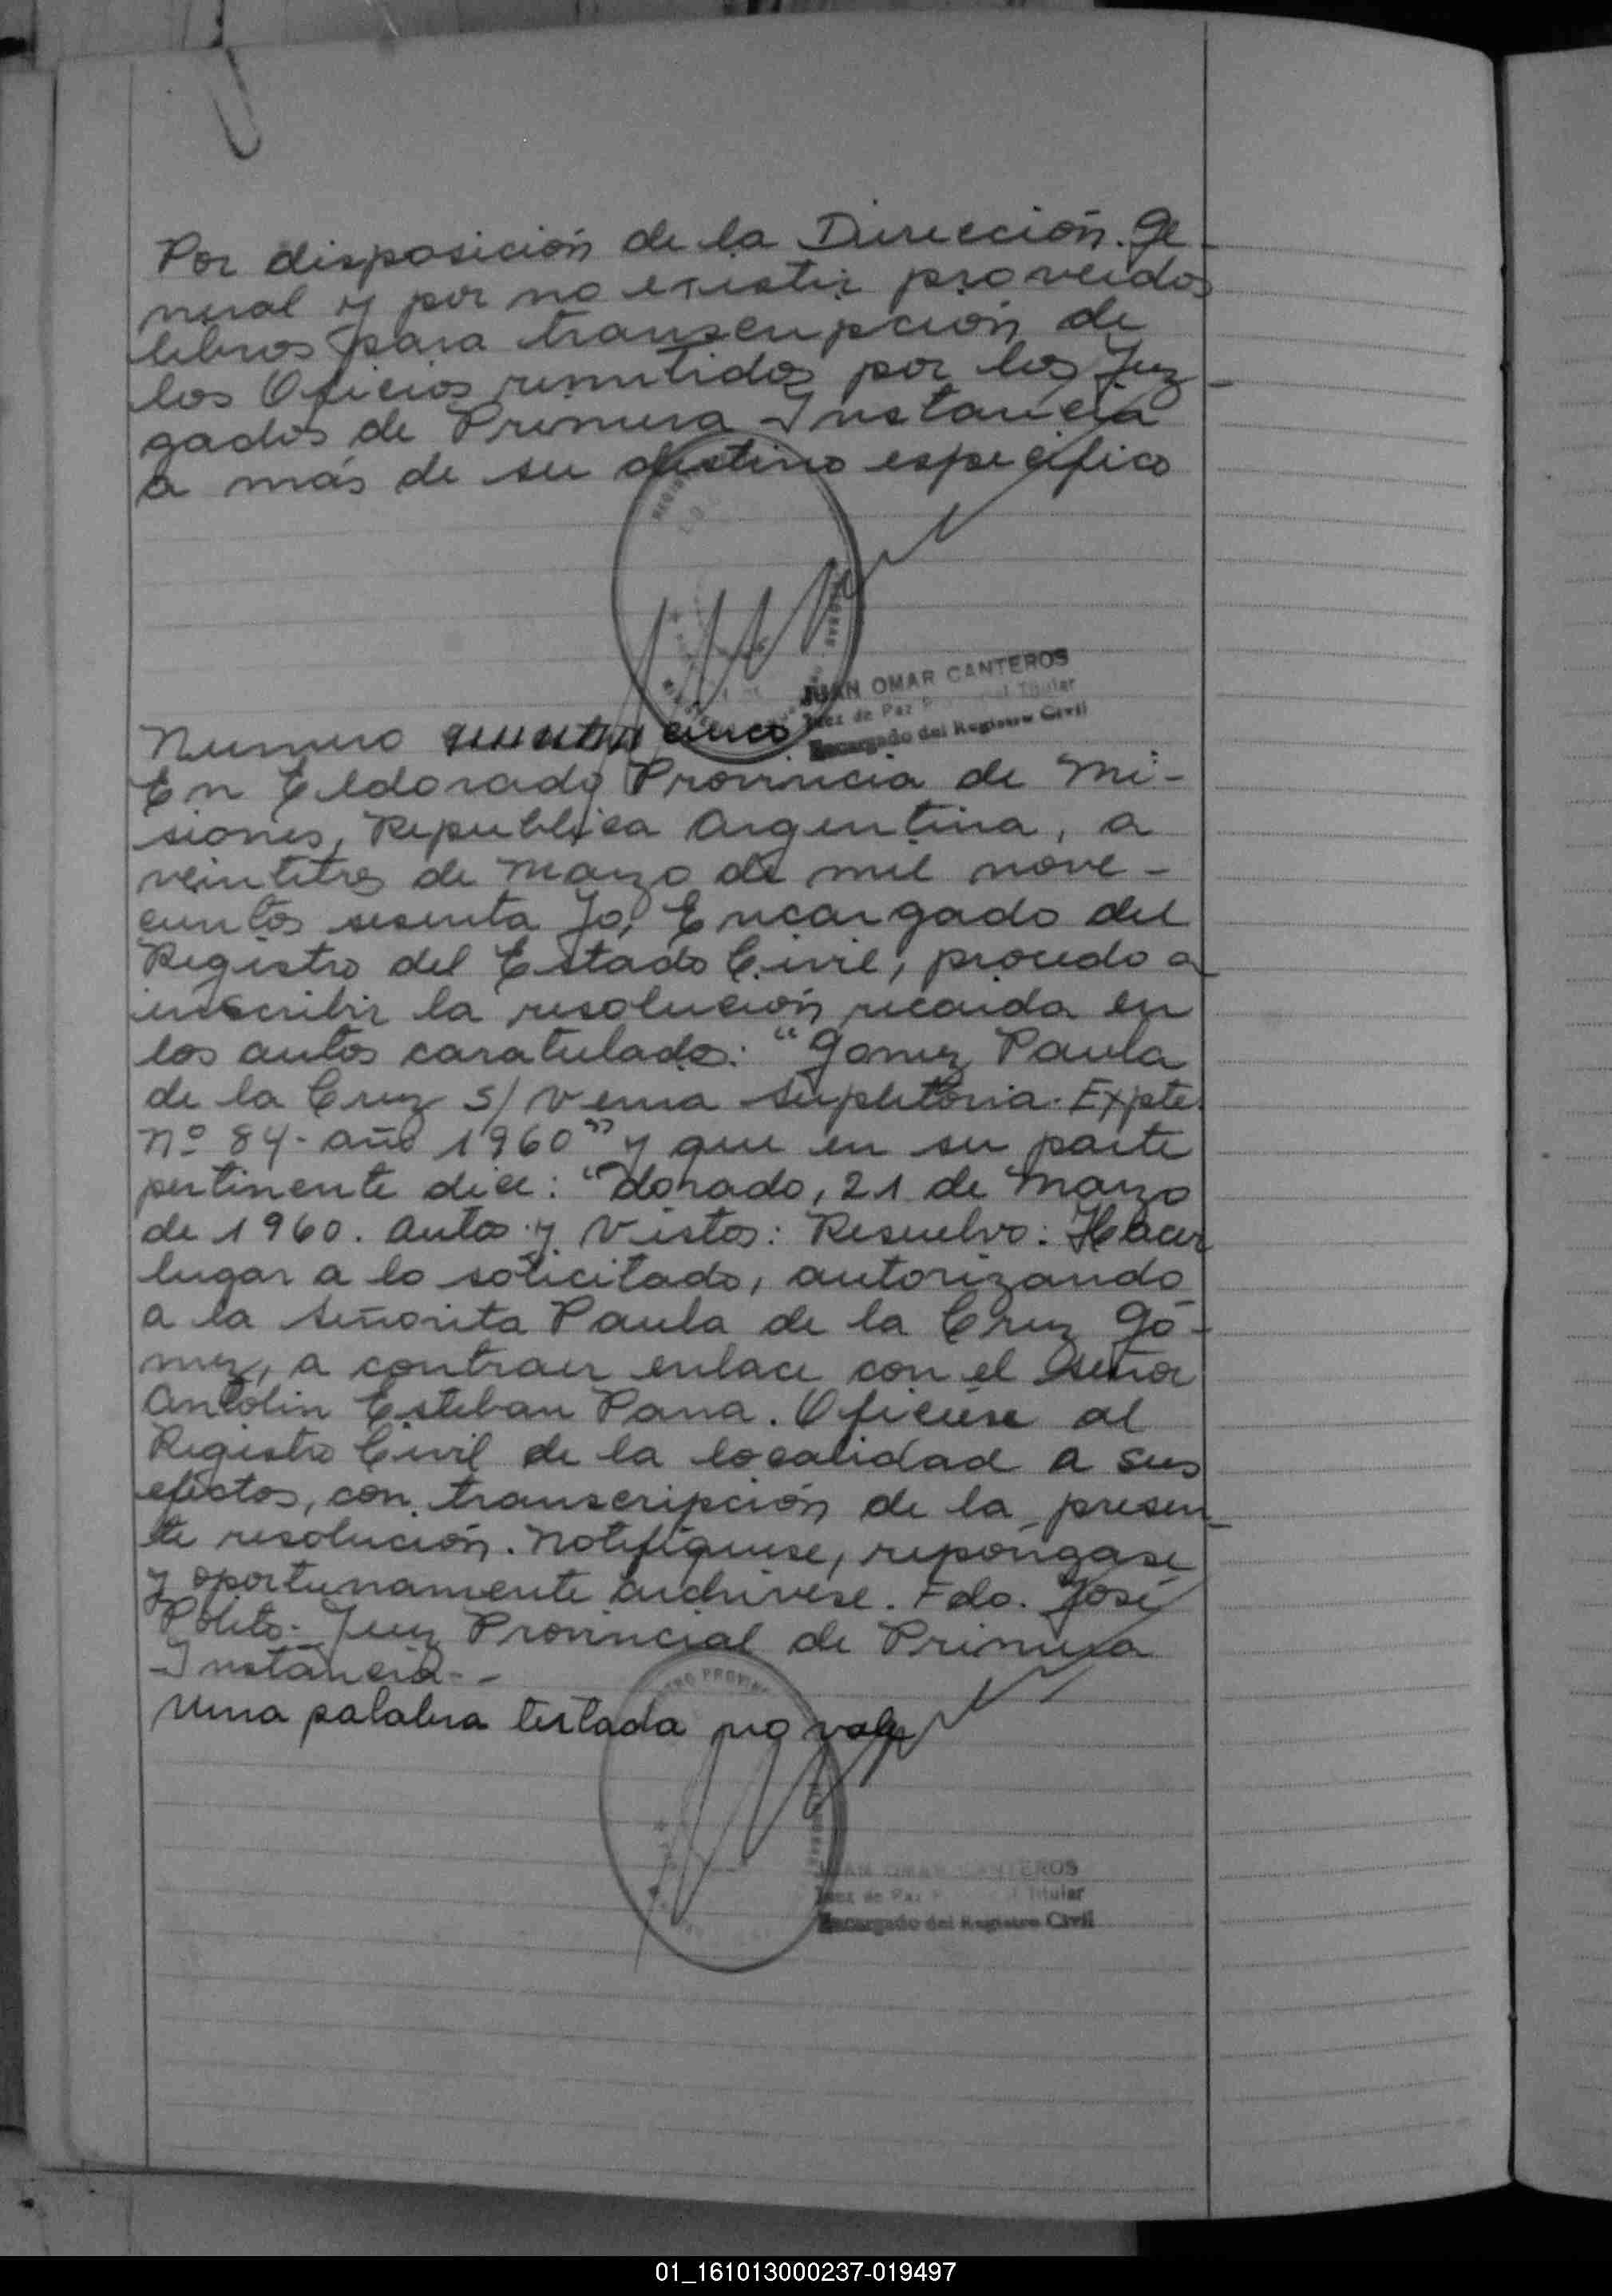 Por disposición de la Dirección Ge-
neral y por no existir proveidos
libros para transcripción de
los Oficios remitidos por los Juz-
gados de Primera Instancia
a más de su destino especifico
JUAN OMAR CANTEROS
Juez de Paz Titular
Encargado del Registro Civil
Numero cinco
En Eldorado Provincia de Mi-
siones, Republica Argentina, a
veintitres de Marzo de mil nove-
cientos sesenta Yo, Encargado del
Registro del Estado Civil, procedo a
inscribir la resolución recaida en
los autos caratulados: "Gomez Paula
de la Cruz s/ Venia Supletoria. Expte.
Nº 84- año 1960" y que en su parte
pertinente dice: "dorado, 21 de Marzo
de 1960. Autos y Vistos: Resuelvo: Hacer
lugar a lo solicitado, autorizando
a la Señorita Paula de la Cruz Gó-
mez, a contraer enlace con el Señor
Antolin Esteban Parra. Oficiése al
Registro Civil de la localidad a sus
efectos, con transcripción de la presen-
te resolución. Notifíquese, repongase
y oportunamente archivese. Fdo. José
Polito- Juez Provincial de Primera
Instancia--
Una palabra testada no vale
REGISTRO PROVIN
JUAN OMAR CANTEROS
Juez de Paz Titular
Encargado del Registro Civil
01_161013000237-019497